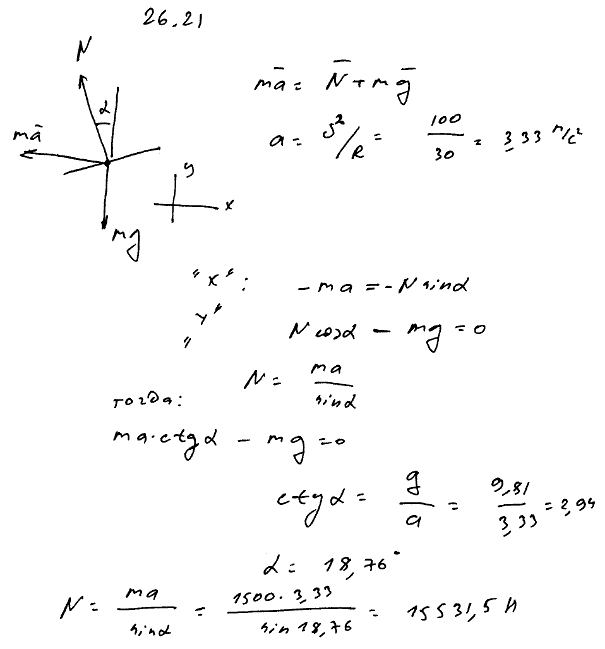 26.21
N
α
mā
mg
y
x
mā = N̄ + mḡ
a = υ²/R = 100/30 = 3,33 м/с²
"x": - ma = - N sinα
"y" N cosα - mg = 0
тогда: N = ma/sinα
ma·ctgα - mg = 0
ctgα = g/a = 9,81/3,33 = 2,94
α = 18,76°
N = ma/sinα = 1500·3,33/sin18,76 = 15531,5 Н